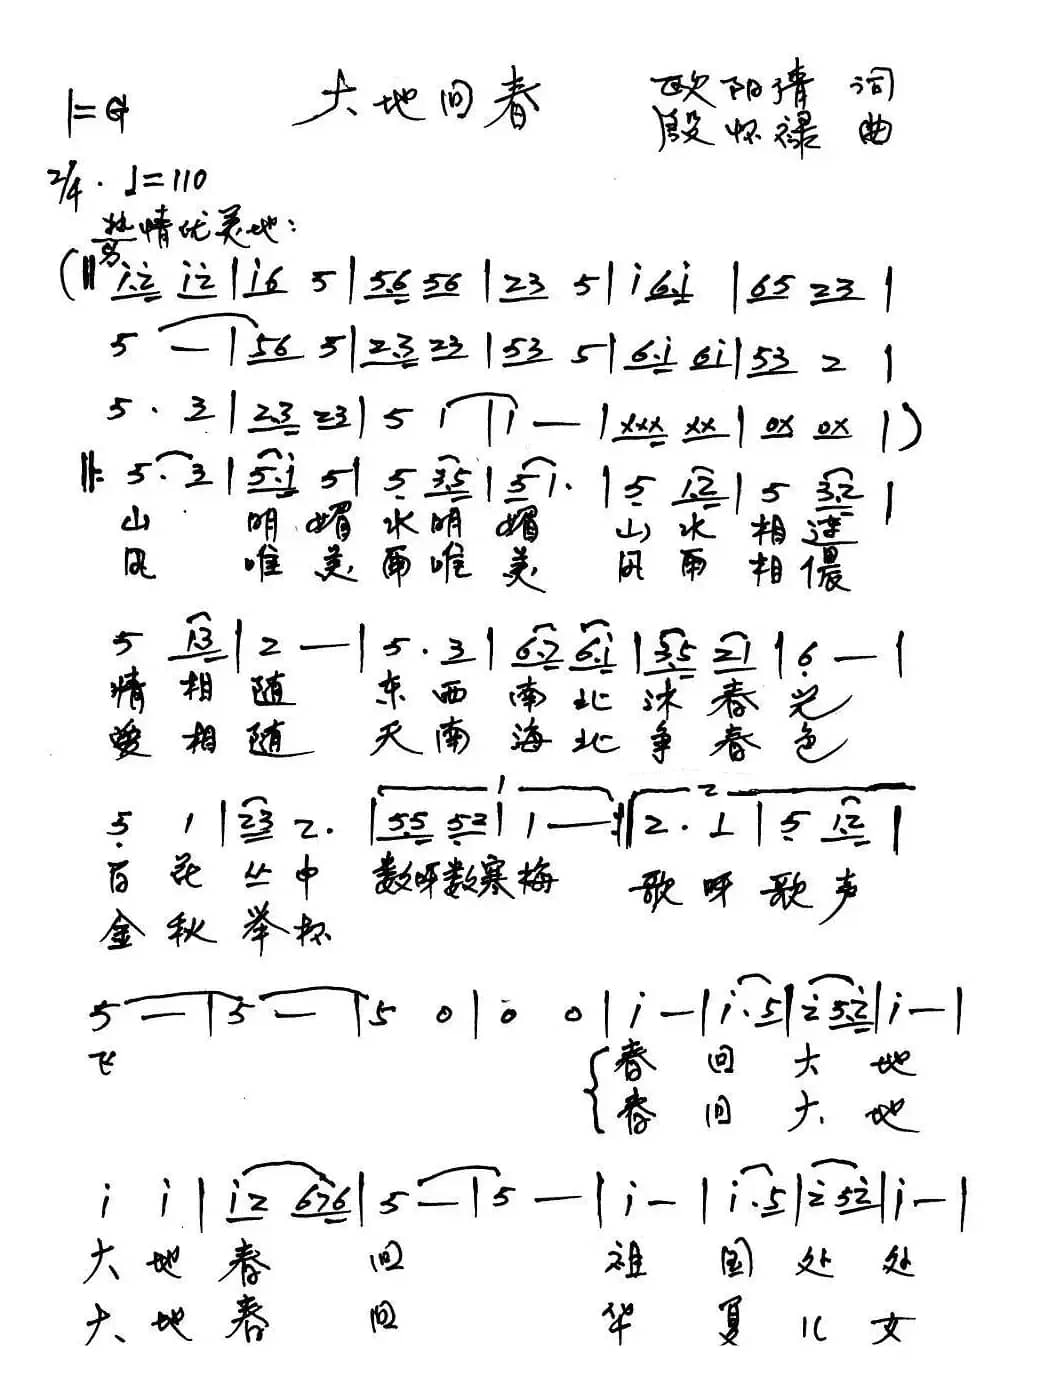 1=G 大地回春 欧阳清 词
殷怀禄 曲
2/4 · ♩=110
热情优美地：
(‖ i.2 i2 | i6 5 | 5.6 56 | 23 5 | i 6.i | 65 23 |
5 — | 56 5 | 2.3 23 | 53 5 | 6.i 6i | 53 2 |
5 · 3 | 2.3 23 | 5 1 | 1 — | xxx xx | 0x 0x | )
‖: 5 · 3 | 5.i 5 | 5 3.5 | 5 1. | 5 1.2 | 5 3.2 |
山 明媚 水明 媚 山水 相连
风 唯美 雨唯 美 风雨 相偎
5 13 | 2 — | 5 · 3 | 6.7 6.i | 3.5 21 | 6 — |
情相随 东西南北沐春光
爱相随 天南海北争春色
1 2
5 1 | 23 2. | 55 52 | 1 — :‖ 2 · 1 | 5 1.2 |
百花丛中 数呀数寒梅 歌呀歌声
金秋举杯
5 — | 5 — | 5 0 | 0 0 | i — | i · 5 | 2 5.2 | i — |
飞 春回大地
春回大地
i i | i2 676 | 5 — | 5 — | i — | i · 5 | 2 52 | i — |
大地春回 祖国处处
大地春回 华夏儿女